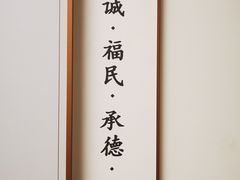 诚·福民·承德·